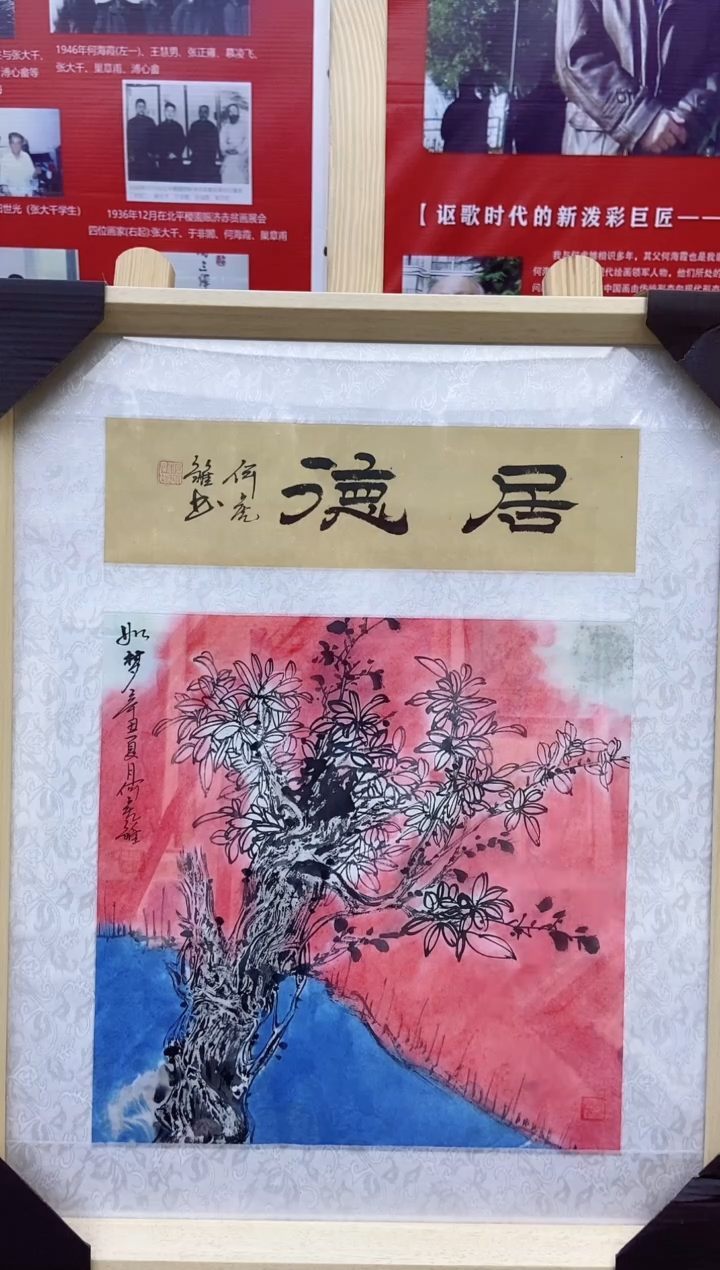 1946年何海霞(左一)、王慧男、张正雍、慕凌飞、
张大千、巢章甫、溥心畬
与张大千、
溥心畬等
世光（张大千学生）
1936年12月在北平稷园赈济赤贫画展会
四位画家(右起):张大千、于非闇、何海霞、巢章甫
【 讴歌时代的新泼彩巨匠——
相识多年，其父何海霞也是我
代绘画领军人物。他们所处的
居德
何彪
雏书
如梦 辛丑夏月何彪雏